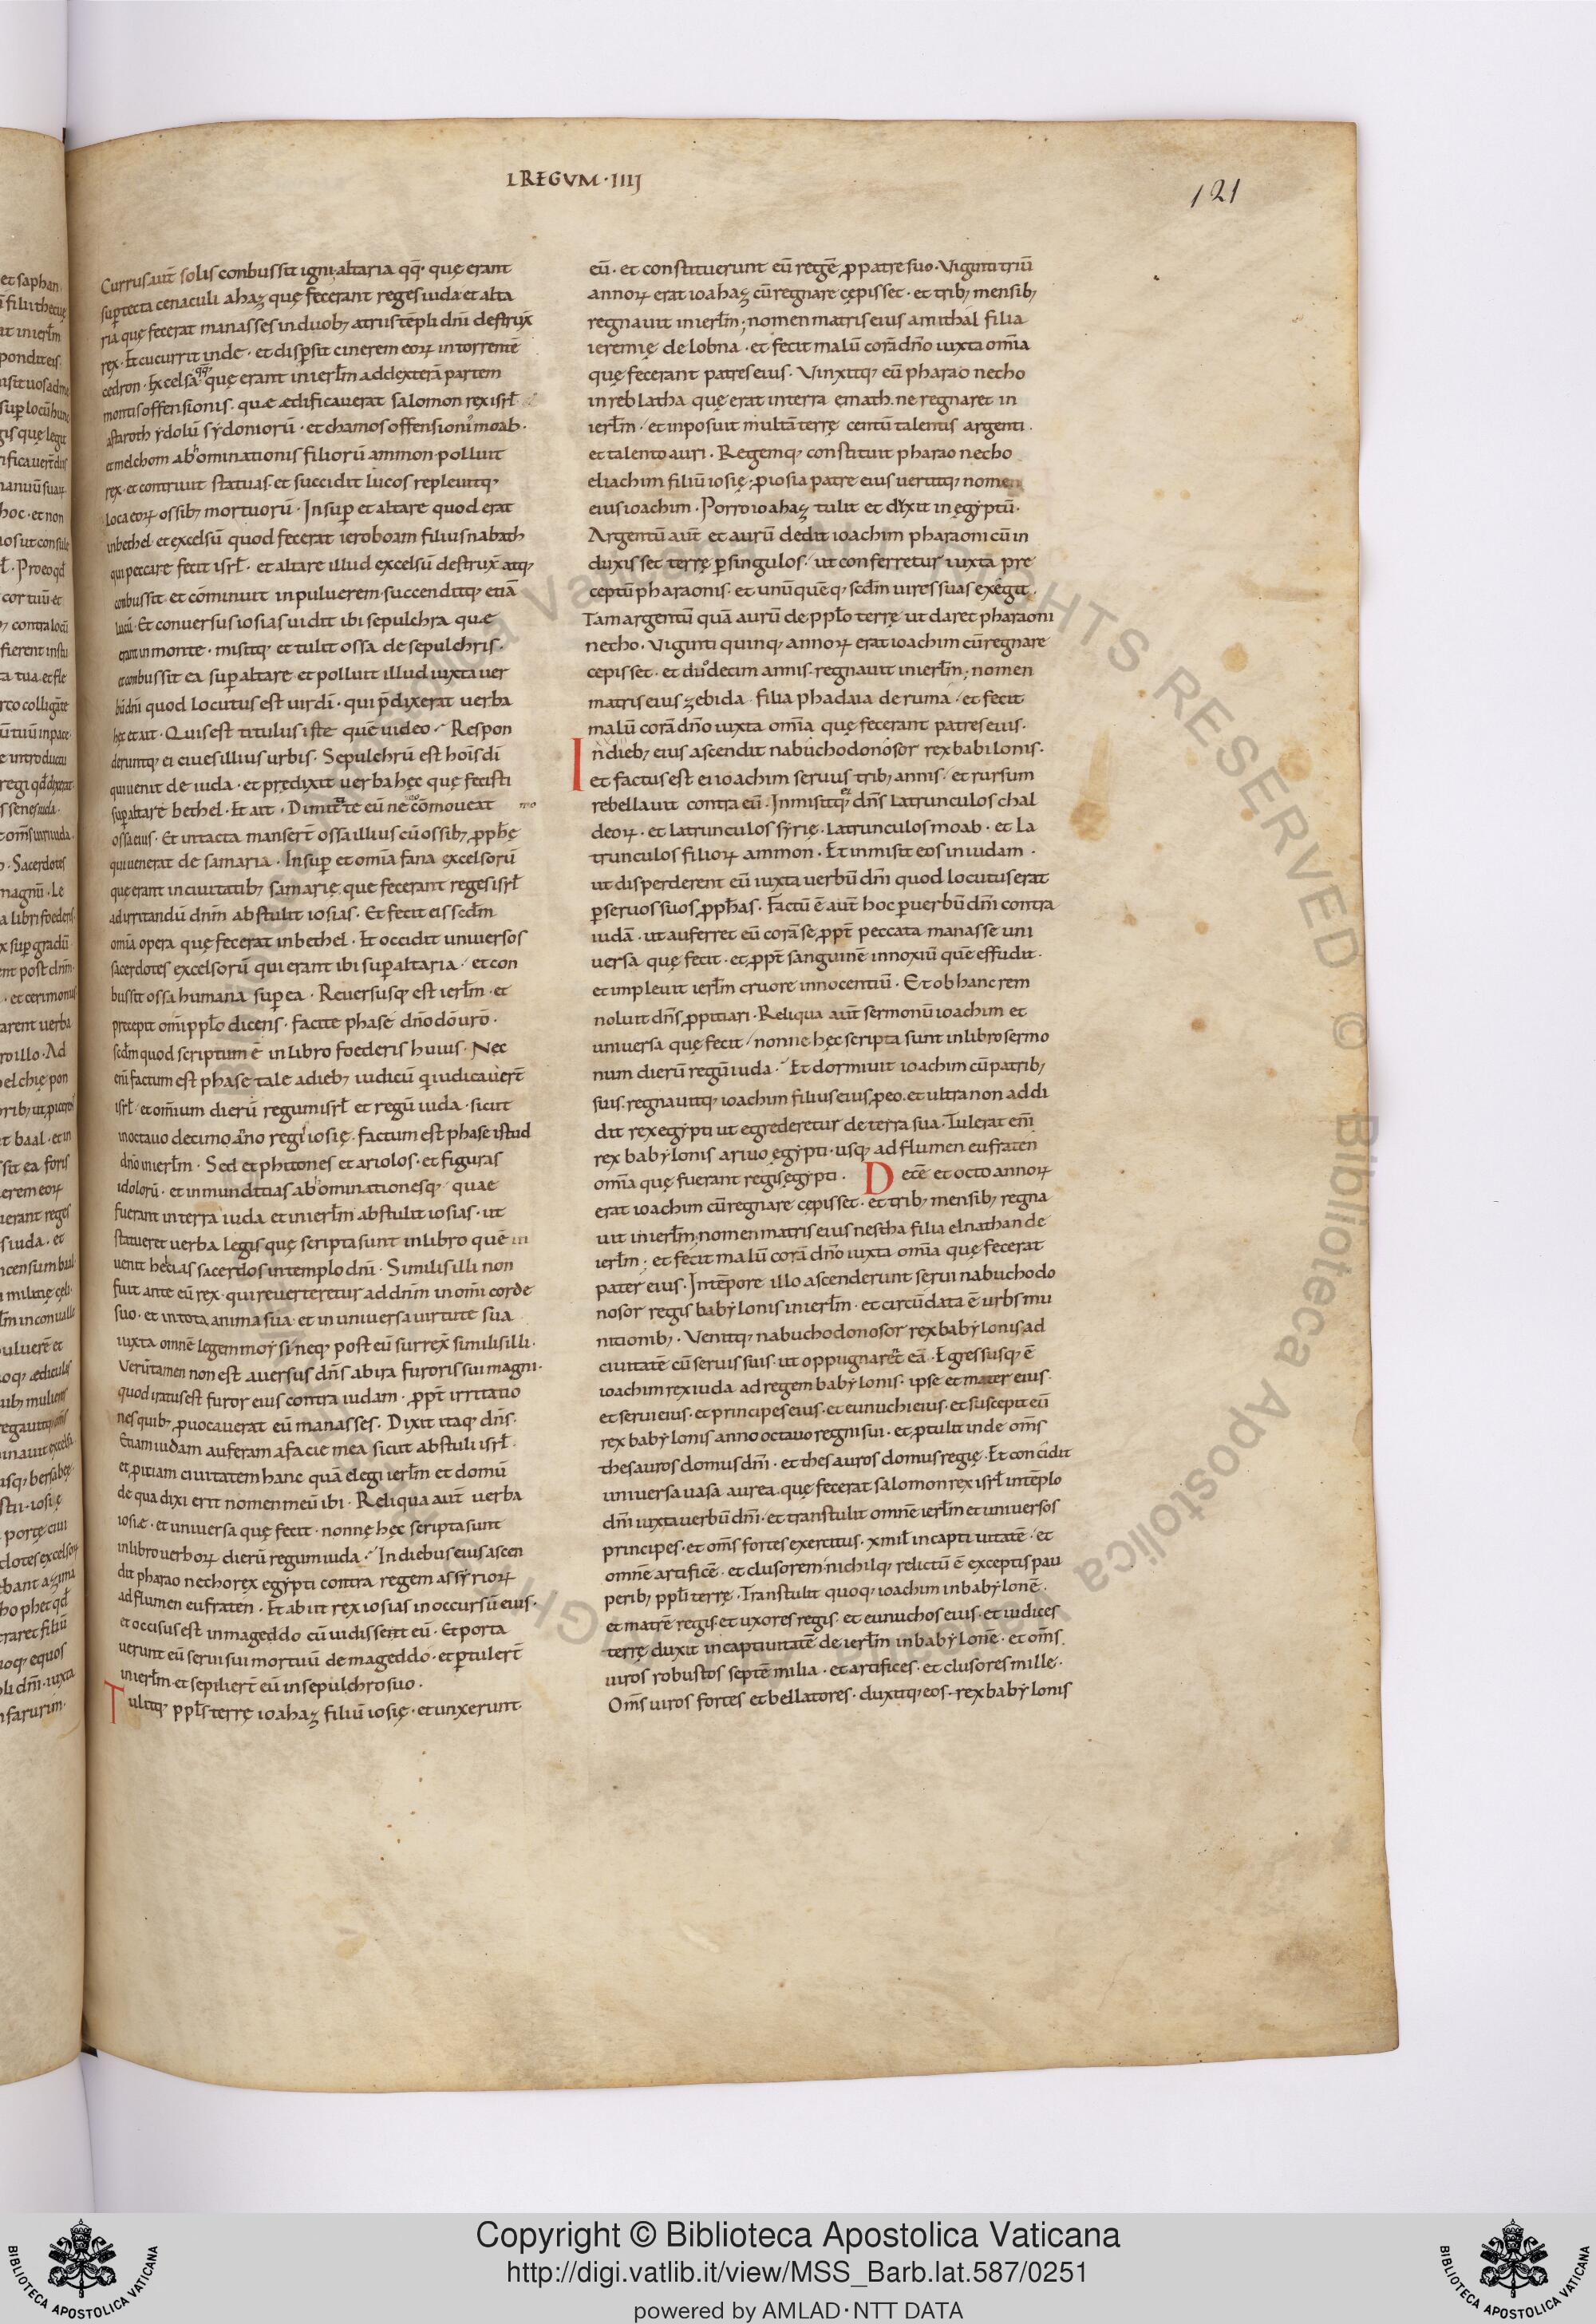 L REGUM · IIII
121
Currus aut̄ solis conbussit igni · altaria qq̄ · quę erant
sup̱ tecta cenaculi ahaz quę fecerant reges iuda et alta
ria quę fecerat manasses in duobꝫ atriis tēpli dn̄i destrux̄
rex · Et cucurrit inde · et disp̱sit cinerem eoꝝ in torrentē
cedron · Excelsa qq; quę erant in ierl̄m ad dexterā partem
montis offensionis · quæ ædificauerat salomon rex isrl̄
astaroth ẏdolū sẏdoniorū · et chamos offensioni moab ·
et melchom abhominationis filiorū ammon · polluit
rex · et contriuit statuas · et succidit lucos repleuitq;
loca eoꝝ ossibꝫ mortuorū · Insup̱ et altare quod erat
in bethel · et excelsū quod fecerat ieroboam filius nabath
qui peccare fecit isrl̄ · et altare illud excelsū destrux̄ atq;
conbussit et cōminuit in puluerem · succenditq; etiā
lucū · Et conuersus iosias uidit ibi sepulchra quæ
erant in monte · misitq; et tulit ossa de sepulchris ·
et conbussit ea sup̱ altare et polluit illud iuxta uer
bū dn̄i quod locutus est uir dī · qui p̄dixerat uerba
hęc et ait · Quis est titulus iste quē uideo · Respon
deruntq; ei ciues illius urbis · Sepulchrū est hoīs dī
qui uenit de iuda · et predixit uerba hęc que fecisti
sup̱ altare bethel · Et ait · Dimittite eū ne cōmoueat
ossa eius · Et intacta manser̄t ossa illius cū ossibꝫ ꝓph̄ę
qui uenerat de samaria · Insup̱ et om̄ia fana excelsorū
que erant in ciuitatibꝫ samarię · quę fecerant reges isrl̄
ad irritandū dn̄m abstulit iosias · Et fecit eis scd̄m
om̄ia opera quę fecerat in bethel · Et occidit uniuersos
sacerdotes excelsorū qui erant ibi sup̱ altaria · et con
bussit ossa humana sup̱ ea · Reuersusq; est ierl̄m · et
precepit om̄i ppl̄o dicens · facite phase dn̄o dō urō ·
scd̄m quod scriptum ē in libro foederis huius · Nec
eni̅ factum est phase tale a diebꝫ iudicū q̄ iudicauer̄t
isrl̄ · et omnium dierū regum isrl̄ et regū iuda · sicut
in octauo decimo an̄no regi iosię · factum est phase istud
dn̄o in ierl̄m · Sed et phitones et ariolos · et figuras
idolorū · et inmunditias abhominationesq; quae
fuerant in terra iuda et in ierl̄m abstulit iosias · ut
statueret uerba legis quę scripta sunt in libro quē in
uenit helcias sacerdos in templo dn̄i · Similis illi non
fuit ante eū rex · qui reuerteretur ad dn̄m in om̄i corde
suo · et in tota anima sua · et in uniuersa uirtute sua
iuxta omnē legem moẏsi · neq; post eū surrex̄ similis illi ·
Uerūtamen non est auersus dn̄s ab ira furoris sui magni ·
quod iratus est furor eius contra iudam · ꝓpt̄ irritatio
nes quibꝫ ꝓuocauerat eū manasses · Dixit itaq; dn̄s ·
Etiam iudam auferam a facie mea sicut abstuli isrl̄ ·
et ꝓitiam ciuitatem hanc quā elegi ierl̄m et domū
de qua dixi erit nomen meū ibi · Reliqua aut̄ uerba
iosiæ · et uniuersa quę fecit · nonne hęc scripta sunt
in libro uerboꝝ dierū regum iuda · In diebus eius ascen
dit pharao necho rex egẏpti contra regem assẏrioꝝ
ad flumen eufraten · Et abiit rex iosias in occursū eius ·
et occisus est in mageddo cū uidissent eū · Et porta
uerunt eū serui sui mortuū de mageddo · et p̱tuler̄t
in ierl̄m · et sepilier̄t eū in sepulchro suo ·
Tulitq; ppl̄s terrę ioahaz filiū iosię · et unxerunt
eū · et constituerunt eū regē ꝓ patre suo · Uiginti triū
annoꝝ erat ioahaz cū regnare cępisset · et tribꝫ mensibꝫ
regnauit in ierl̄m ; nomen matris eius amithal filia
ieremię de lobna · et fecit malū corā dn̄o iuxta om̄ia
quę fecerant patres eius · Uinxitq; eū pharao necho
in reblatha quę erat in terra ęmath · ne regnaret in
ierl̄m · et inposuit multā terrę centū talentis argenti ·
et talento auri · Regemq; constituit pharao necho
eliachim filiū iosię · ꝓ iosia patre eius uertitq; nomen
eius ioachim · Porro ioahaz tulit et duxit in ęgẏptū ·
Argentū aut̄ et aurū dedit ioachim pharaoni cū in
duxisset terrę p̱ singulos · ut conferretur iuxta pre
ceptū pharaonis · et unūquēq; scd̄m uires suas exegit ·
Tam argentū quā aurū de ppl̄o terrę ut daret pharaoni
necho · Uiginti quinq; annoꝝ erat ioachim cū regnare
cepisset · et duodecim annis regnauit in ierl̄m ; nomen
matris eius zebida filia phadaia de ruma · et fecit
malū corā dn̄o iuxta om̄ia quę fecerant patres eius ·
In diebꝫ eius ascendit nabuchodonosor rex babilonis ·
et factus est ei ioachim seruus tribꝫ annis · et rursum
rebellauit contra eū · Inmisitq; ei dn̄s latrunculos chal
deoꝝ · et latrunculos sẏrię · latrunculos moab · et la
trunculos filioꝝ ammon · Et inmisit eos in iudam ·
ut disperderent eū iuxta uerbū dn̄i quod locutus erat
p̱ seruos suos ꝓph̄as · Factū ē aut̄ hoc p̱ uerbū dn̄i contra
iudā · ut auferret eū corā se ꝓpt̄ peccata manasse uni
uersa quę fecit · et ꝓpt̄ sanguinē innoxiū quē effudit ·
et impleuit ierl̄m cruore innocentiū · Et ob hanc rem
noluit dn̄s ꝓpitiari · Reliqua aut̄ sermonū ioachim et
uniuersa quę fecit / nonne hęc scripta sunt in libro sermo
num dierū regū iuda · Et dormiuit ioachim cū patribꝫ
suis · regnauitq; ioachim filius eius ꝓ eo · et ultra non addi
dit rex egẏpti ut egrederetur de terra sua · Tulerat eni̅
rex babẏlonis a riuo ęgẏpti · usq; ad flumen eufraten
om̄ia quę fuerant regis ęgẏpti · Decē et octo annoꝝ
erat ioachim cū regnare cepisset · et tribꝫ mensibꝫ regna
uit in ierl̄m ; nomen matris eius nestha filia elnathan de
ierl̄m ; et fecit malū corā dn̄o iuxta om̄ia quę fecerat
pater eius · In tēpore illo ascenderunt serui nabuchodo
nosor regis babẏlonis in ierl̄m · et circūdata ē urbs mu
nitionibꝫ · Uenitq; nabuchodonosor rex babẏlonis ad
ciuitatē cū seruis suis · ut oppugnaret eā · Egressusq; ē
ioachim rex iuda ad regem babẏlonis · ipse et mater eius ·
et serui eius · et principes eius · et eunuchi eius · et suscepit eū
rex babẏlonis anno octauo regni sui · et ꝓtulit inde om̄s
thesauros domus dn̄i · et thesauros domus regię · Et concidit
uniuersa uasa aurea quę fecerat salomon rex isrl̄ in tēplo
dn̄i iuxta uerbū dn̄i · et transtulit omnē ierl̄m et uniuersos
principes · et om̄s fortes exercitus · x mil̄ in captiuitatē · et
omnē artificē · et clusorem · nichilq; relictū ē exceptis pau
peribꝫ ppl̄i terrę · Transtulit quoq; ioachim in babẏlonē ·
et matrē regis · et uxores regis · et eunuchos eius · et iudices
terrę duxit in captiuitatē de ierl̄m in babẏlonē · et om̄s
uiros robustos septē milia · et artifices · et clusores mille ·
Om̄s uiros fortes et bellatores · duxitq; eos · rex babẏlonis
Copyright © Biblioteca Apostolica Vaticana
http://digi.vatlib.it/view/MSS_Barb.lat.587/0251
powered by AMLAD · NTT DATA